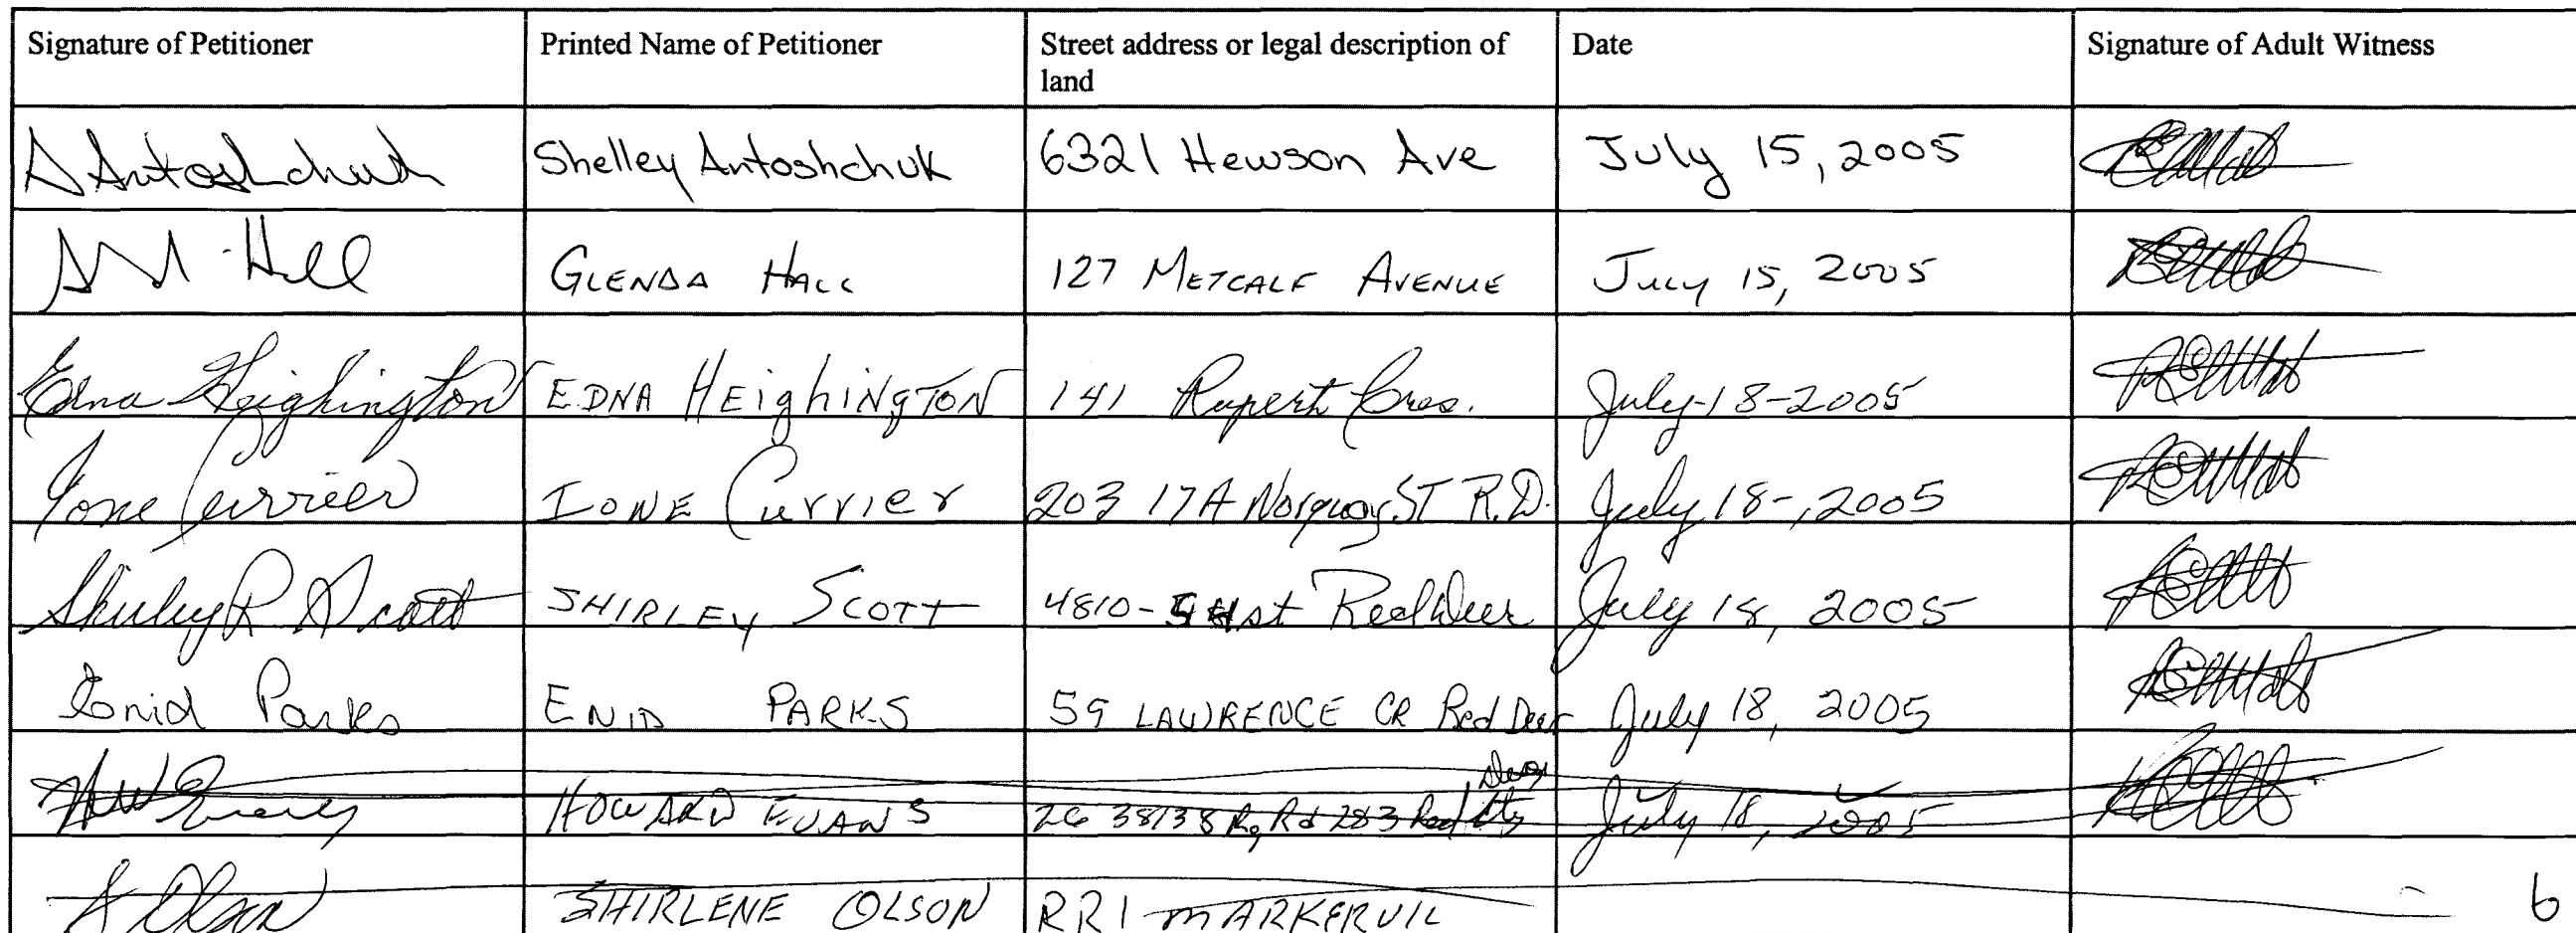 Signature of Petitioner Printed Name of Petitioner Street address or legal description of land Date Signature of Adult Witness
S Antoshchuk Shelley Antoshchuk 6321 Hewson Ave July 15, 2005
Hall GLENDA HALL 127 METCALF AVENUE JULY 15, 2005
Edna Heighington EDNA HEighiNgTON 141 Rupert Cres. July-18-2005
Ione Currier IONE Currier 203 17A Norquay ST R.D. July 18-, 2005
Shirley R Scott SHIRLEY SCOTT 4810- st Red Deer July 18, 2005
Enid Parks ENID PARKS 59 LAWRENCE CR Red Deer July 18, 2005
HOWARD EVANS 26 38138 Rg Rd 283 Red Deer Cty July 18, 2005
S Olson SHIRLENE OLSON RR1 MARKERVIL
6